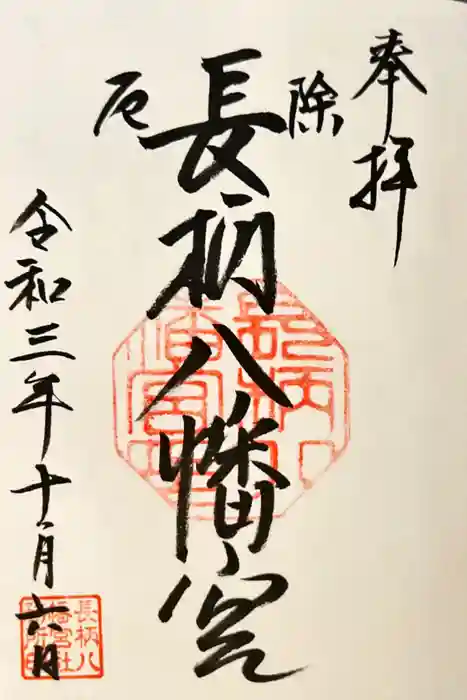 奉拝
除厄
長柄八幡宮
令和三年十月六日
長柄八
幡宮社
務所印